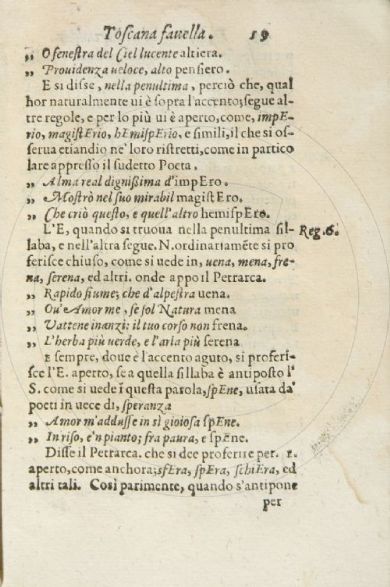 Toscana fauella. 19
„ O fenestra del Ciel lucente altiera.
„ Prouidenza ueloce, alto pensiero.
E si disse, nella penultima, perciò che, qual
hor naturalmente ui è sopra l'accento, segue al-
tre regole, e per lo più ui è aperto, come, impE-
rio, magistErio, hEmispErio, e simili, il che si os-
serua etiandio ne' loro ristretti, come in partico
lare appresso il sudetto Poeta.
„ Alma real dignißima d'impEro.
„ Mostrò nel suo mirabil magistEro.
„ Che criò questo, e quell'altro hemispEro.
L'E, quando si truoua nella penultima sil- Reg. 6.
laba, e nell'altra segue. N. ordinariamēte si pro
ferisce chiuso, come si uede in, uena, mena, fre-
na, serena, ed altri. onde appo il Petrarca.
„ Rapido fiume; che d'alpestra uena.
„ Ou' Amor me, se sol Natura mena
„ Vattene inanzi: il tuo corso non frena.
„ L'herba più uerde, e l'aria più serena
E sempre, doue è l'accento aguto, si proferi-
sce l'E. aperto, se a quella sillaba è antiposto l'
S. come si uede ī questa parola, spEne, usata da'
poeti in uece di, speranza
„ Amor m'addusse in sì gioiosa spEne.
„ In riso, e'n pianto; fra paura, e spEne.
Disse il Petrarca. che si dee proferire per. E.
aperto, come anchora; sfEra, spEra, schiEra, ed
altri tali. Così parimente, quando s'antipone
per